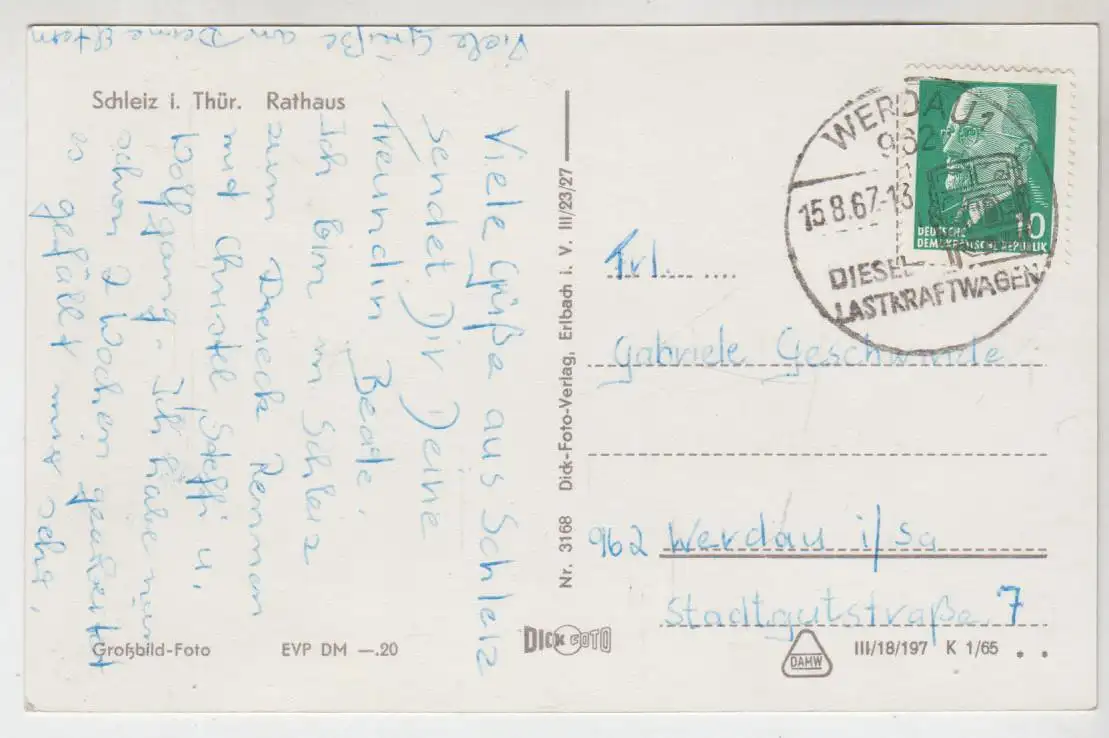 Viele Grüße an Deine Eltern
Schleiz i. Thür. Rathaus
Viele Grüße aus Schleiz
sendet Dir Deine
Freundin Beate.
Ich bin in Schleiz
zum Dreieck Rennen
mit Christel, Steffi u.
Wolfgang. Ich habe nun
schon 2 Wochen gearbeitet
es gefällt mir sehr.
Großbild-Foto EVP DM —.20
Nr. 3168 Dick-Foto-Verlag, Erlbach i. V. III/23/27
DICK FOTO
WERDAU 1
962
15.8.67-13
DIESEL-
LASTKRAFTWAGEN
10
DEUTSCHE
DEMOKRATISCHE REPUBLIK
Frl.
Gabriele Geschwinde
962 Werdau i/Sa
Stadtgutstraße 7
DAMW
III/18/197 K 1/65